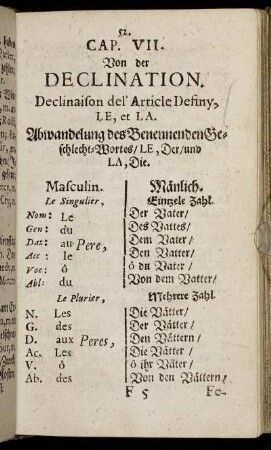 52.
CAP. VII.
Von der
DECLINATION.
Declinaiſon del' Article Definy,
LE, et LA.
Abwandelung des Benennenden Ge-
ſchlecht-Wortes / LE, Der / und
LA, Die.
Masculin. Mänlich.
Le Singulier, Eintzele Zahl.
Nom: Le Der Vater /
Gen: du Des Vattes /
Dat: au Pere, Dem Vater /
Acc: le Den Vatter /
Voc: ô ô du Vater /
Abl: du Von dem Vatter /
Le Plurier, Mehrere Zahl.
N. Les Die Vätter /
G. des Der Vätter /
D. aux Peres, Den Vättern /
Ac. Les Die Vätter /
V. ô ô ihr Väter /
Ab. des Von den Vättern /
F 5 Fe-